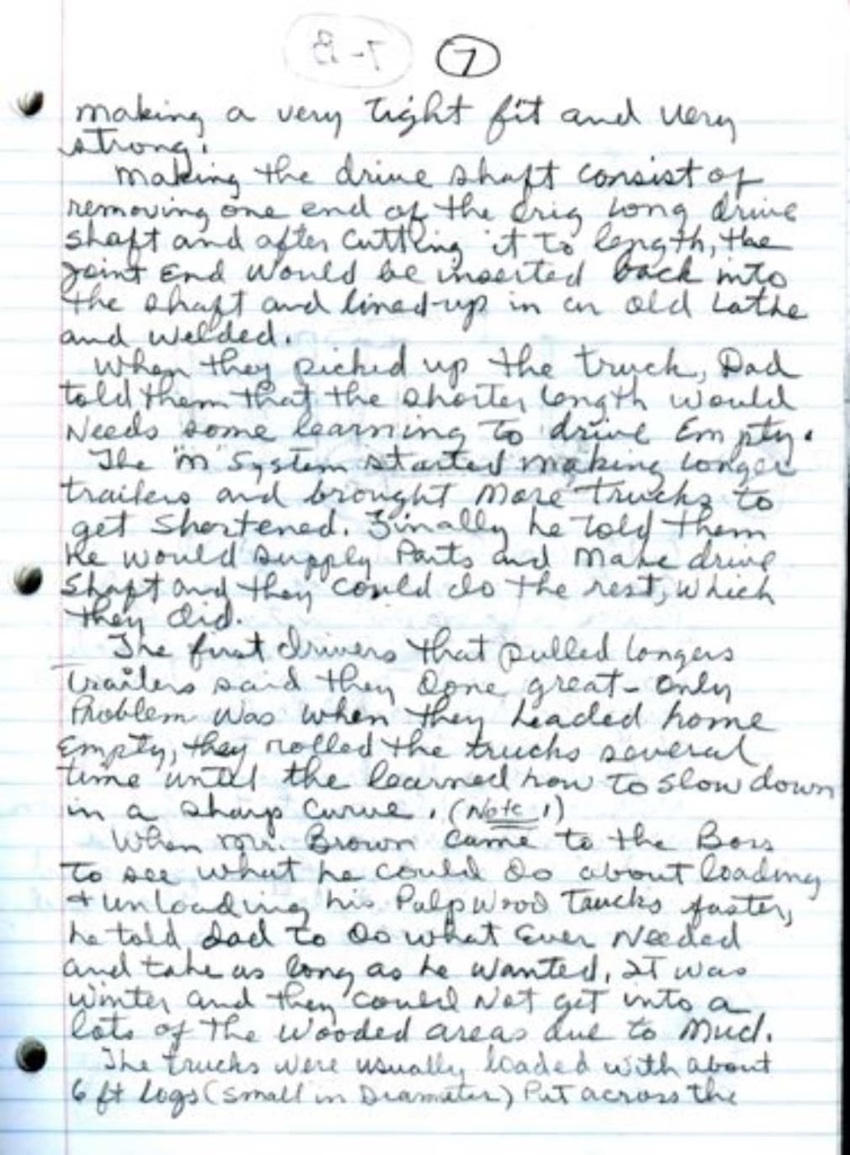 7-B
7
making a very tight fit and very
strong.
making the drive shaft consist of
removing one end of the orig long drive
shaft and after cutting it to length, the
joint End would be inserted back into
the shaft and lined-up in an old Lathe
and welded.
When they picked up the truck, Dad
told them that the shorter length would
Needs some learning to drive Empty.
The "M" System started making longer
trailers and brought More Trucks to
get Shortened. Finally he told them
he would supply Parts and Make drive
Shaft and they could do the rest, which
they did.
The first drivers that pulled longers
trailers said they Done great - only
Problem was when they headed home
Empty, they rolled the trucks several
time until the learned how to slow down
in a sharp curve. (Note 1)
When Mr. Brown came to the Boss
to see what he could do about loading
+ unloading his PulpWood Trucks faster,
he told Dad to Do what Ever Needed
and take as long as he wanted. It was
winter and they could Not get into a
lots of The Wooded areas due to Mud.
The trucks were usually loaded with about
6 ft Logs (Small in Diameter) Put across the